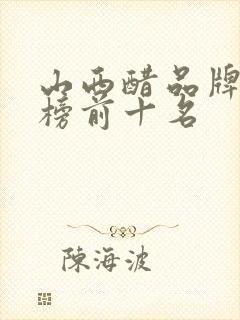 山西醋品牌
榜前十名
陳海波